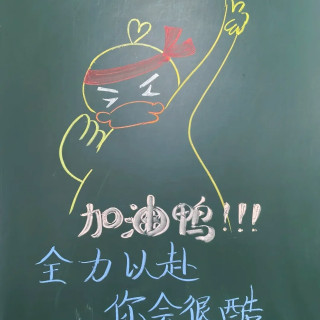 加油鸭!!!
全力以赴
你会很酷